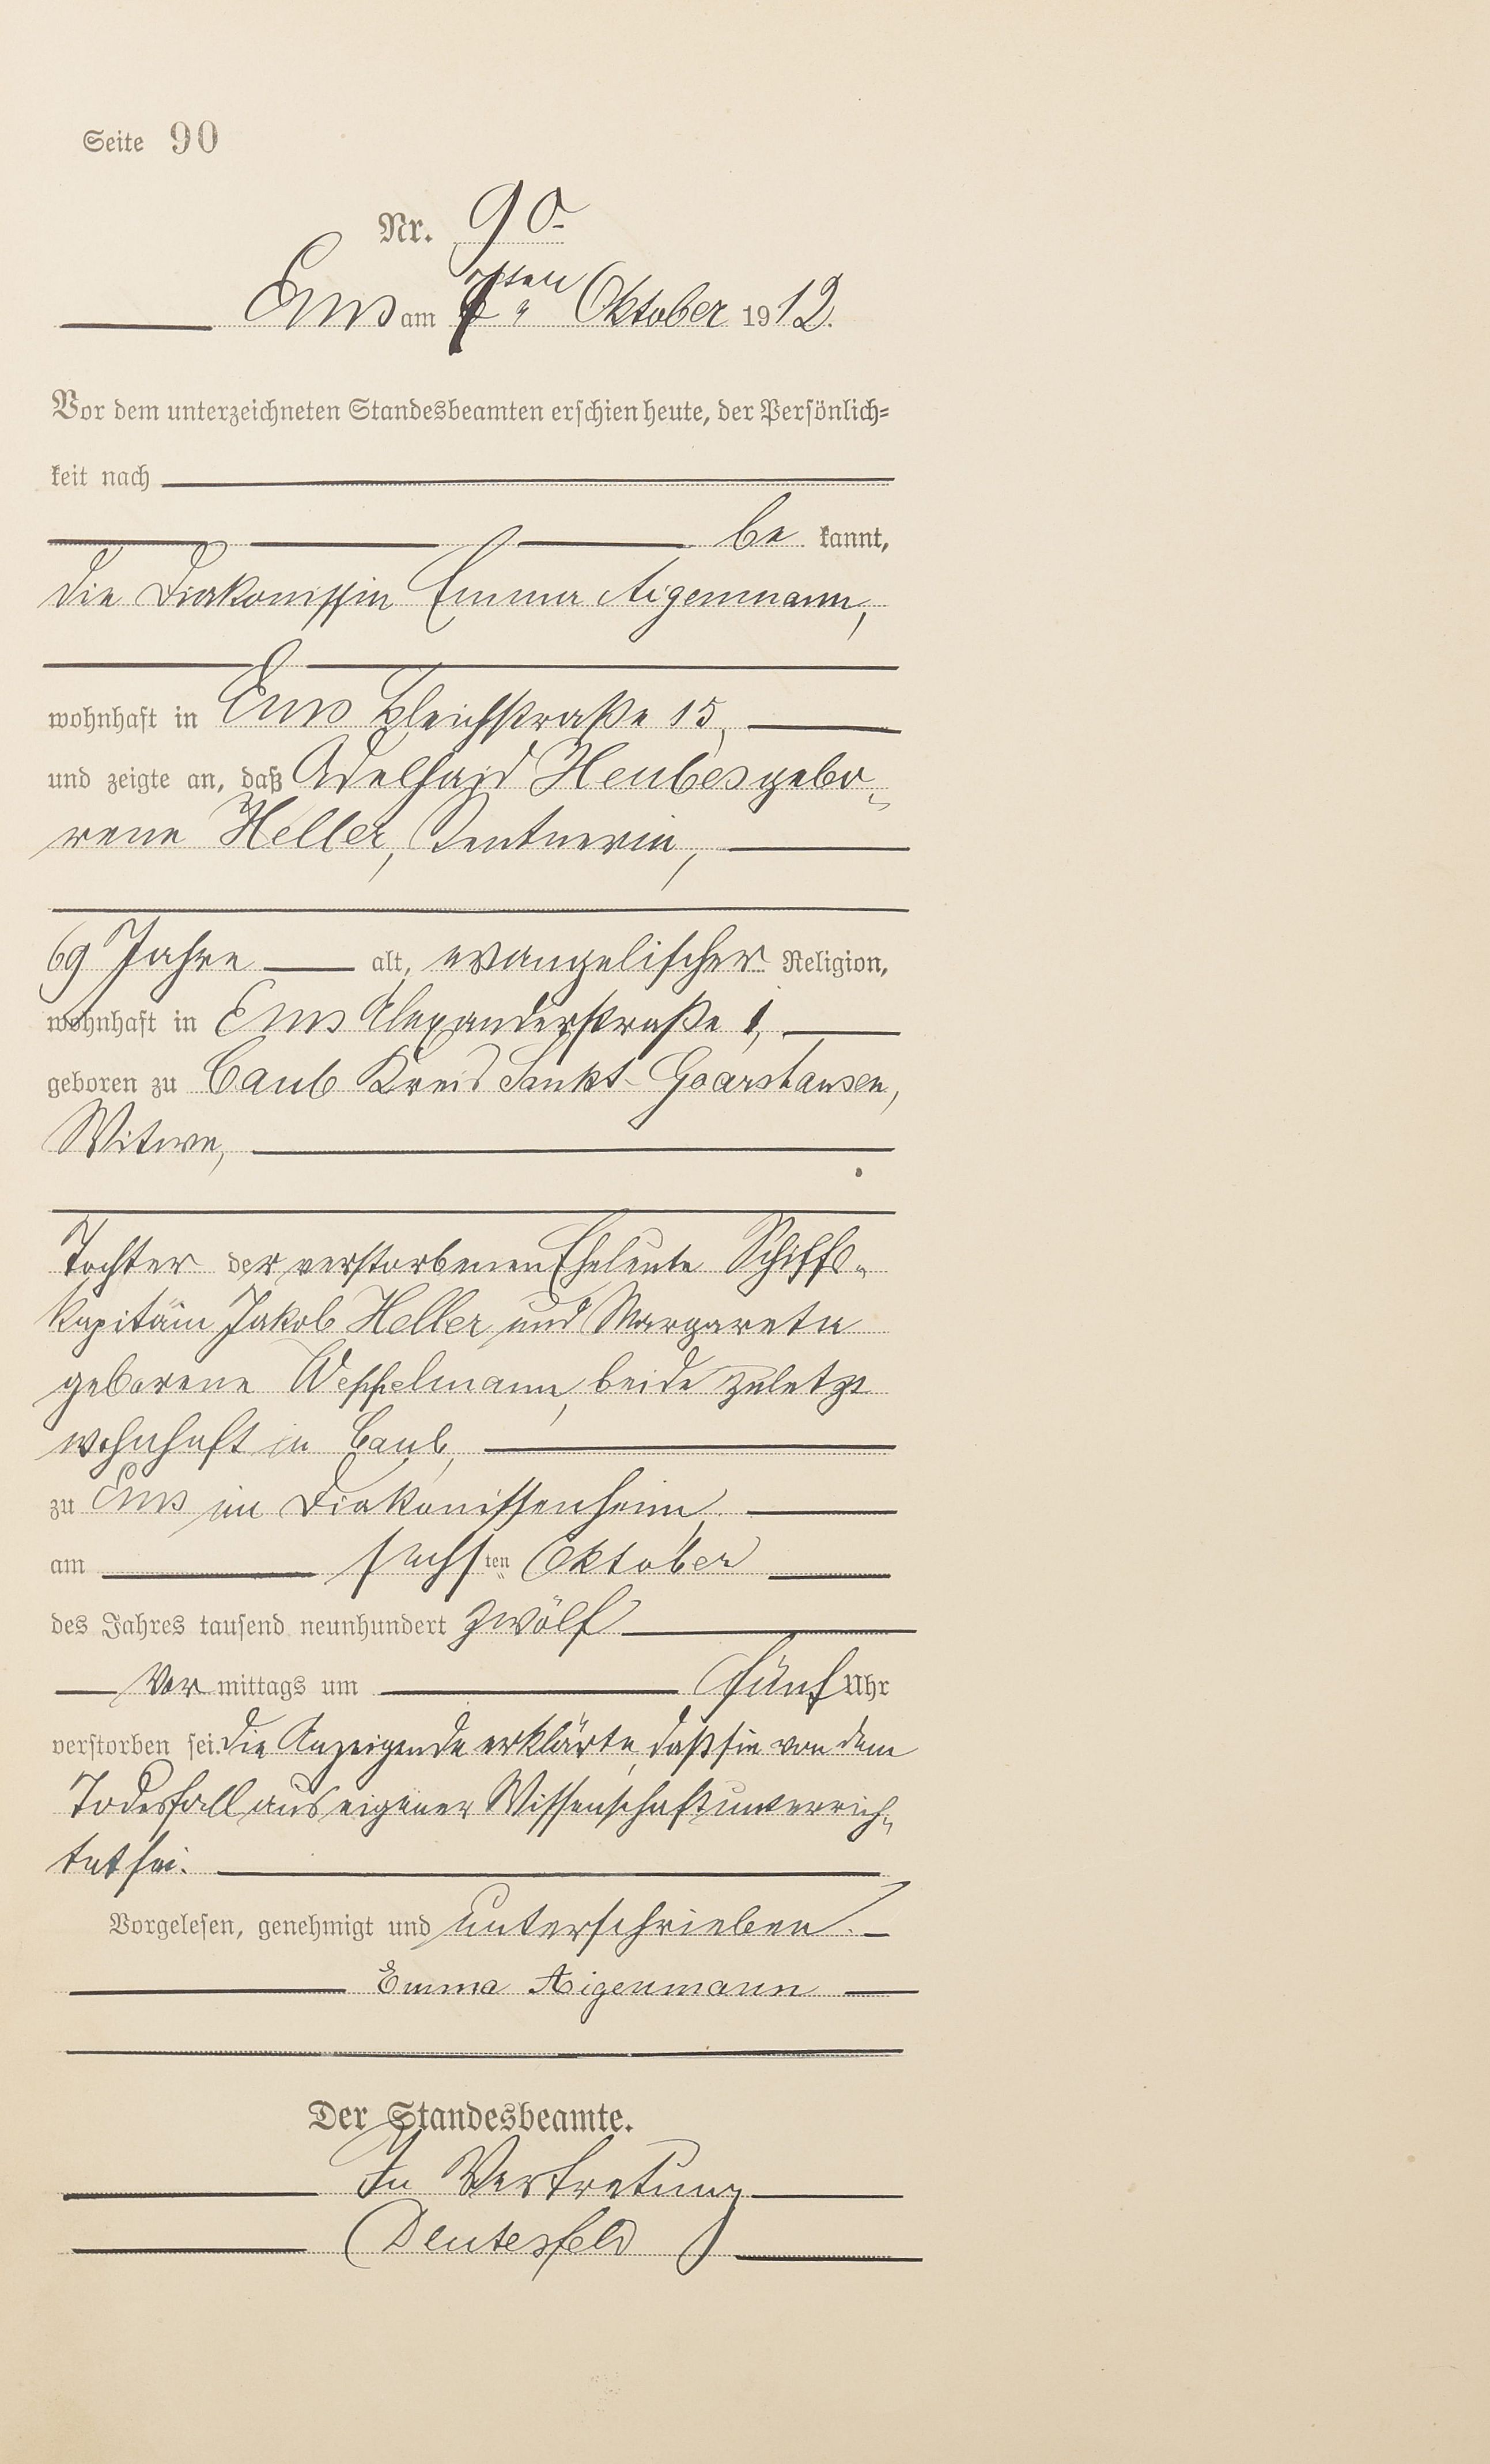 Seite 90
Nr. 90
Ems am ten Oktober 1912.
Vor dem unterzeichneten Standesbeamten erschien heute, der Persönlich=
keit nach
be kannt,
die Diakonissin Emma Aigenmann,
wohnhaft in Ems Bleichstraße 15,
und zeigte an, daß Adelhaid Heubes gebo-
rene Heller, Rentnerin,
69 Jahre alt, evangelischer Religion,
wohnhaft in Ems Alexanderstraße 1,
geboren zu Caub Kreis Sankt-Goarshausen,
Witwe,
Tochter der verstorbenen Eheleute Schiffs-
kapitän Jakob Heller und Margareta
geborene Weppelmann, beide zuletzt
wohnhaft in Caub,
zu Ems im Diakonissenheim,
am sechsten Oktober
des Jahres tausend neunhundert zwölf
Vor mittags um fünf Uhr
verstorben sei. Die Anzeigende erklärte, daß sie von dem
Todesfall aus eigener Wissenschaft unterrich-
tet sei.
Vorgelesen, genehmigt und unterschrieben.
Emma Aigenmann
Der Standesbeamte.
In Vertretung
Deutesfeld